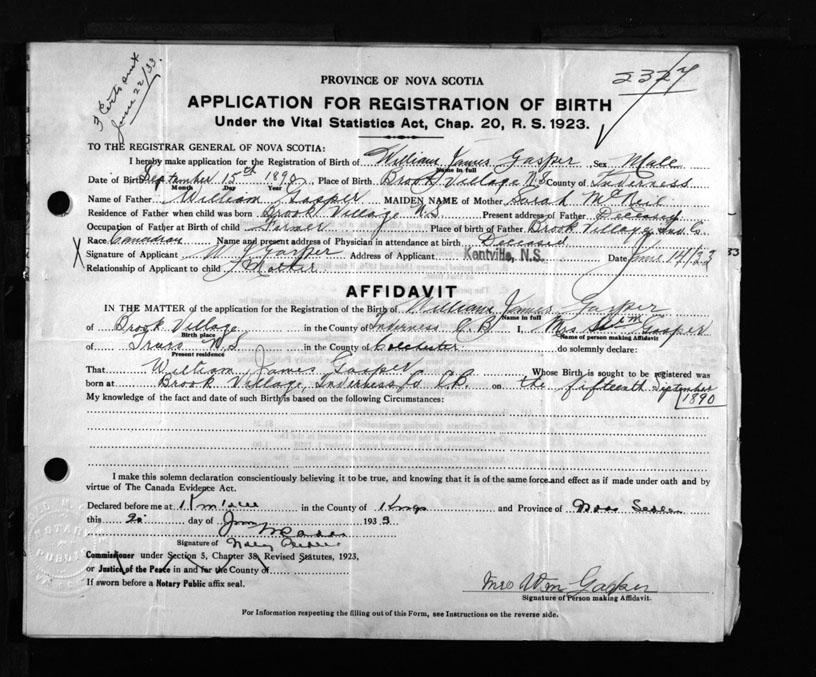 7 Certs sent
June 22/33.
2327
PROVINCE OF NOVA SCOTIA
APPLICATION FOR REGISTRATION OF BIRTH
Under the Vital Statistics Act, Chap. 20, R. S. 1923.
TO THE REGISTRAR GENERAL OF NOVA SCOTIA:
I hereby make application for the Registration of Birth of William James Gasper Sex Male
Name in full
Date of Birth September 15th 1890 Place of Birth Brook Village N.S County of Inverness
Month Day Year
Name of Father William Gasper MAIDEN NAME of Mother Sarah McNeil
Residence of Father when child was born Brook Village N.S Present address of Father Deceased
Occupation of Father at Birth of child Farmer Place of birth of Father Brook Village, Inv. Co.
Race Canadian Name and present address of Physician in attendance at birth Deceased
X Signature of Applicant W J Gasper Address of Applicant Kentville, N.S. Date June 14/33
Relationship of Applicant to child Mother
AFFIDAVIT
IN THE MATTER of the application for the Registration of the Birth of William James Gasper
Name in full
of Brook Village in the County of Inverness C.B I, Mrs Wm Gasper
Birth place Name of person making Affidavit
of Truro N.S in the County of Colchester do solemnly declare:
Present residence
That William James Gasper Whose Birth is sought to be registered was
born at Brook Village, Inverness Co C.B. on the fifteenth September
1890
My knowledge of the fact and date of such Birth is based on the following Circumstances:
I make this solemn declaration conscientiously believing it to be true, and knowing that it is of the same force and effect as if made under oath and by
virtue of The Canada Evidence Act.
Declared before me at Kentville in the County of Kings and Province of Nova Scotia
this day of June 1933
Signature of Notary Public
Commissioner under Section 5, Chapter 38, Revised Statutes, 1923,
or Justice of the Peace in and for the County of
If sworn before a Notary Public affix seal.
Mrs Wm Gasper
Signature of Person making Affidavit.
For Information respecting the filling out of this Form, see Instructions on the reverse side.